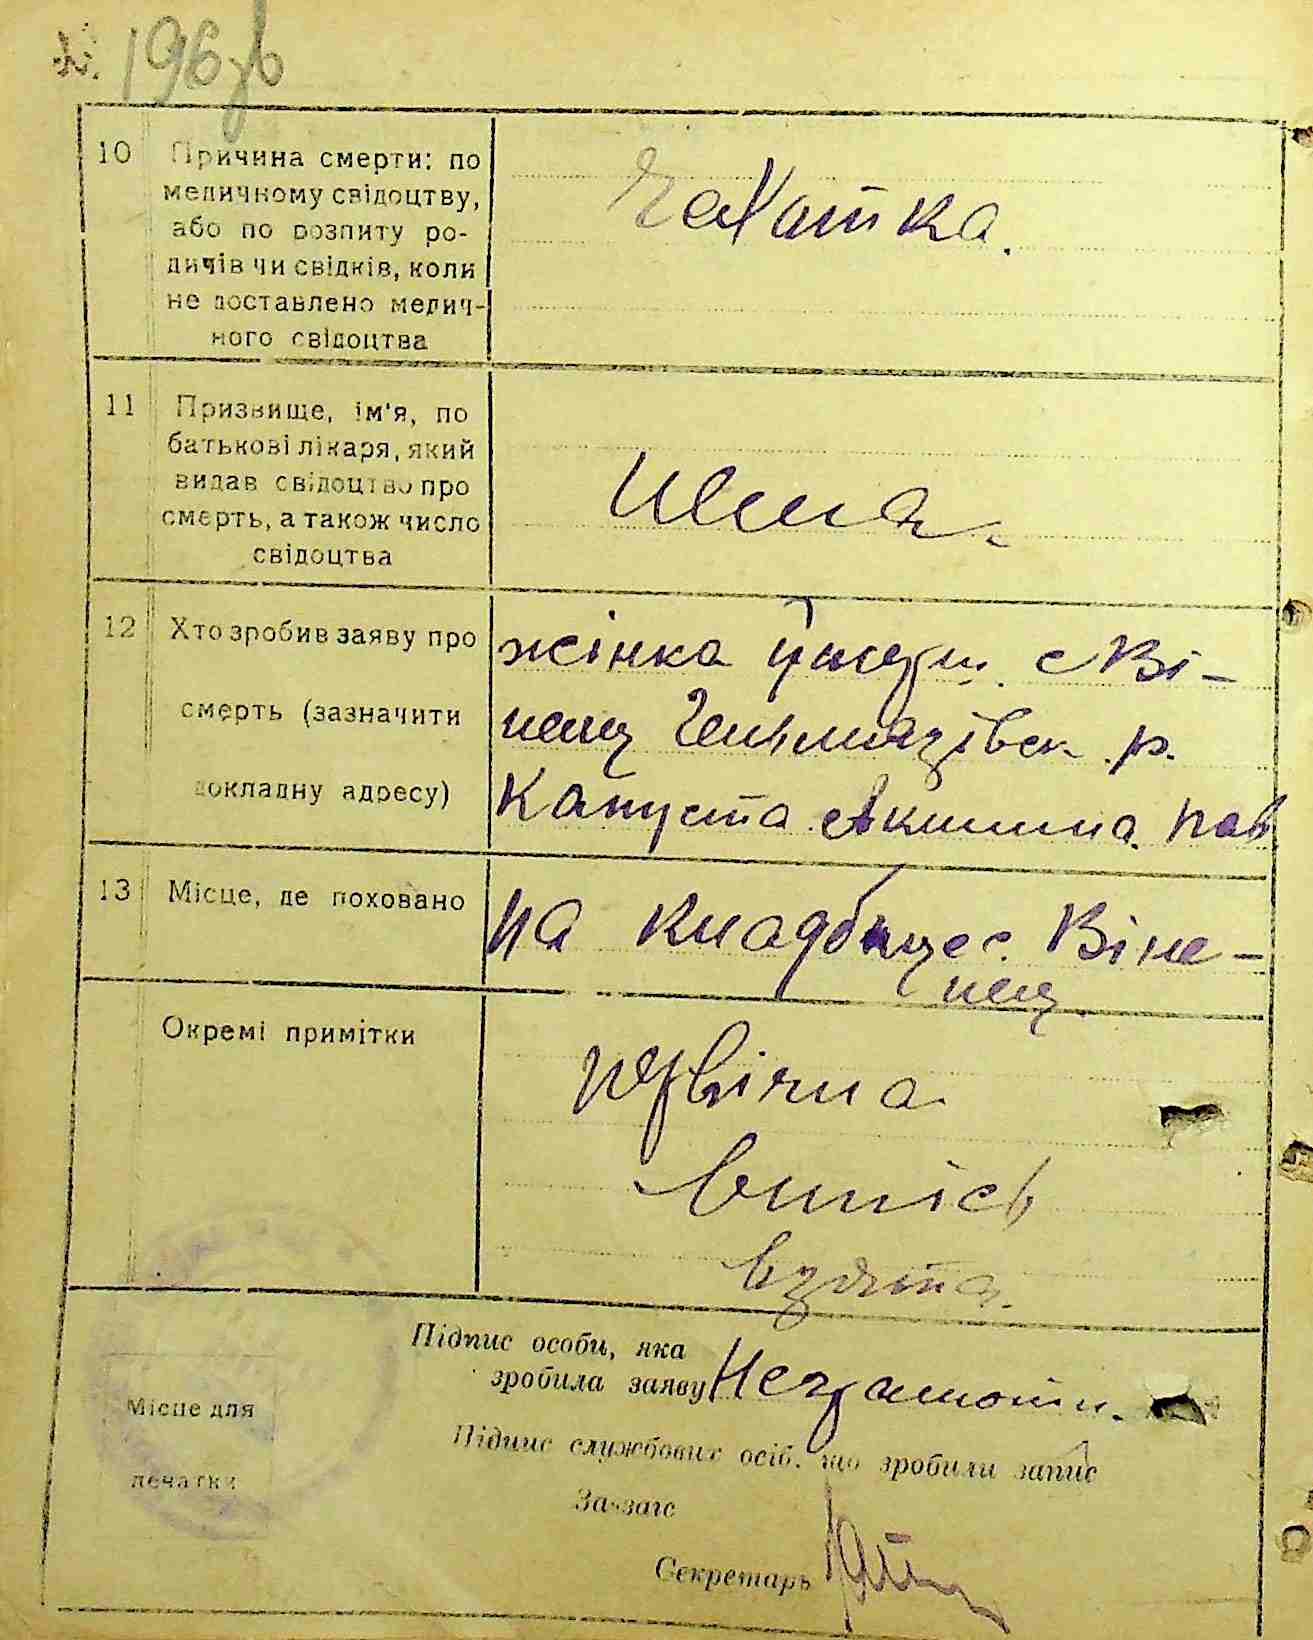 196
10 Причина смерти: по
медичному свідоцтву,
або по розпиту ро-
дичів чи свідків, коли
не доставлено медич-
ного свідоцтва
Чахотка.
11 Призвище, ім'я, по
батькові лікаря, який
видав свідоцтво про
смерть, а також число
свідоцтва
Нема.
12 Хто зробив заяву про
смерть (зазначити
докладну адресу)
жінка с Ві-
ненц Гельмязівськ. р.
Капуста Акилина Пав
13 Місце, де поховано
На кладбище с. Віне-
нец
Окремі примітки
Первічна
випісь
взята.
Підпис особи, яка
зробила заяву Неграмотн.
Підпис службових осіб, що зробили запис
Зав-загс
Секретарь
Місце для
печатки